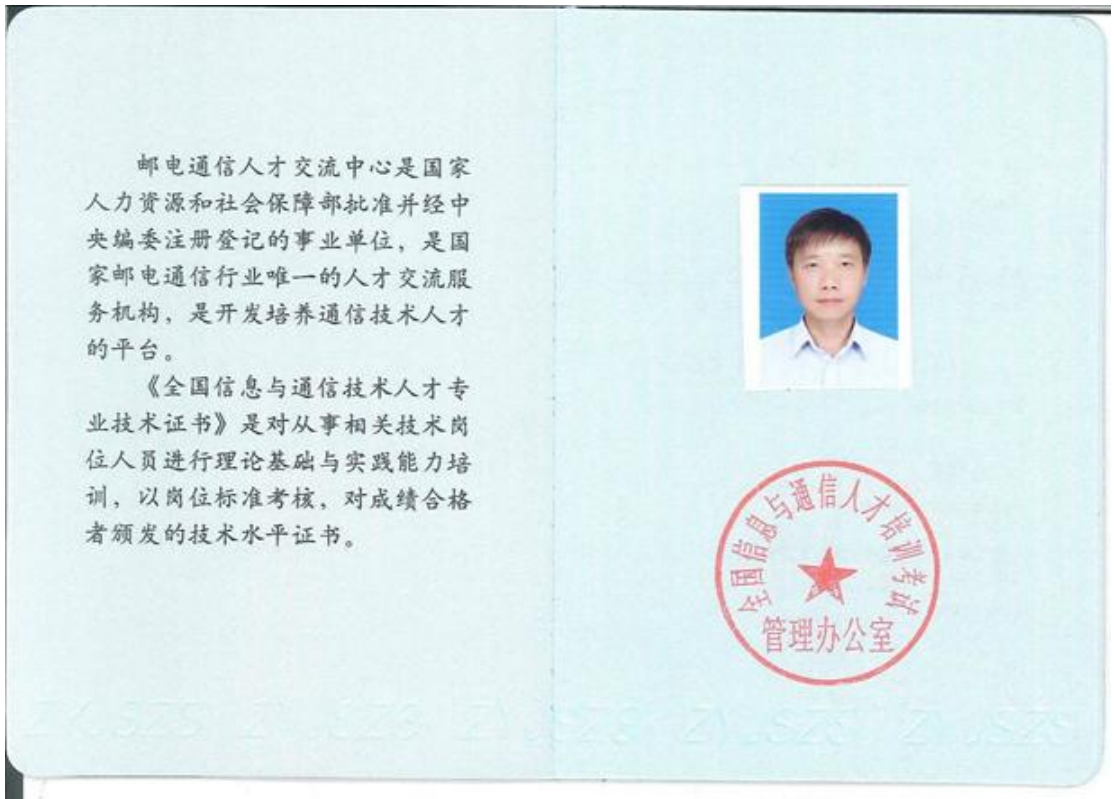 邮电通信人才交流中心是国家
人力资源和社会保障部批准并经中
央编委注册登记的事业单位，是国
家邮电通信行业唯一的人才交流服
务机构，是开发培养通信技术人才
的平台。
《全国信息与通信技术人才专
业技术证书》是对从事相关技术岗
位人员进行理论基础与实践能力培
训，以岗位标准考核，对成绩合格
者颁发的技术水平证书。
全国信息与通信人才培训考试
管理办公室
ZY.SZS ZY.SZS ZY.SZS ZY.SZS ZY.SZS